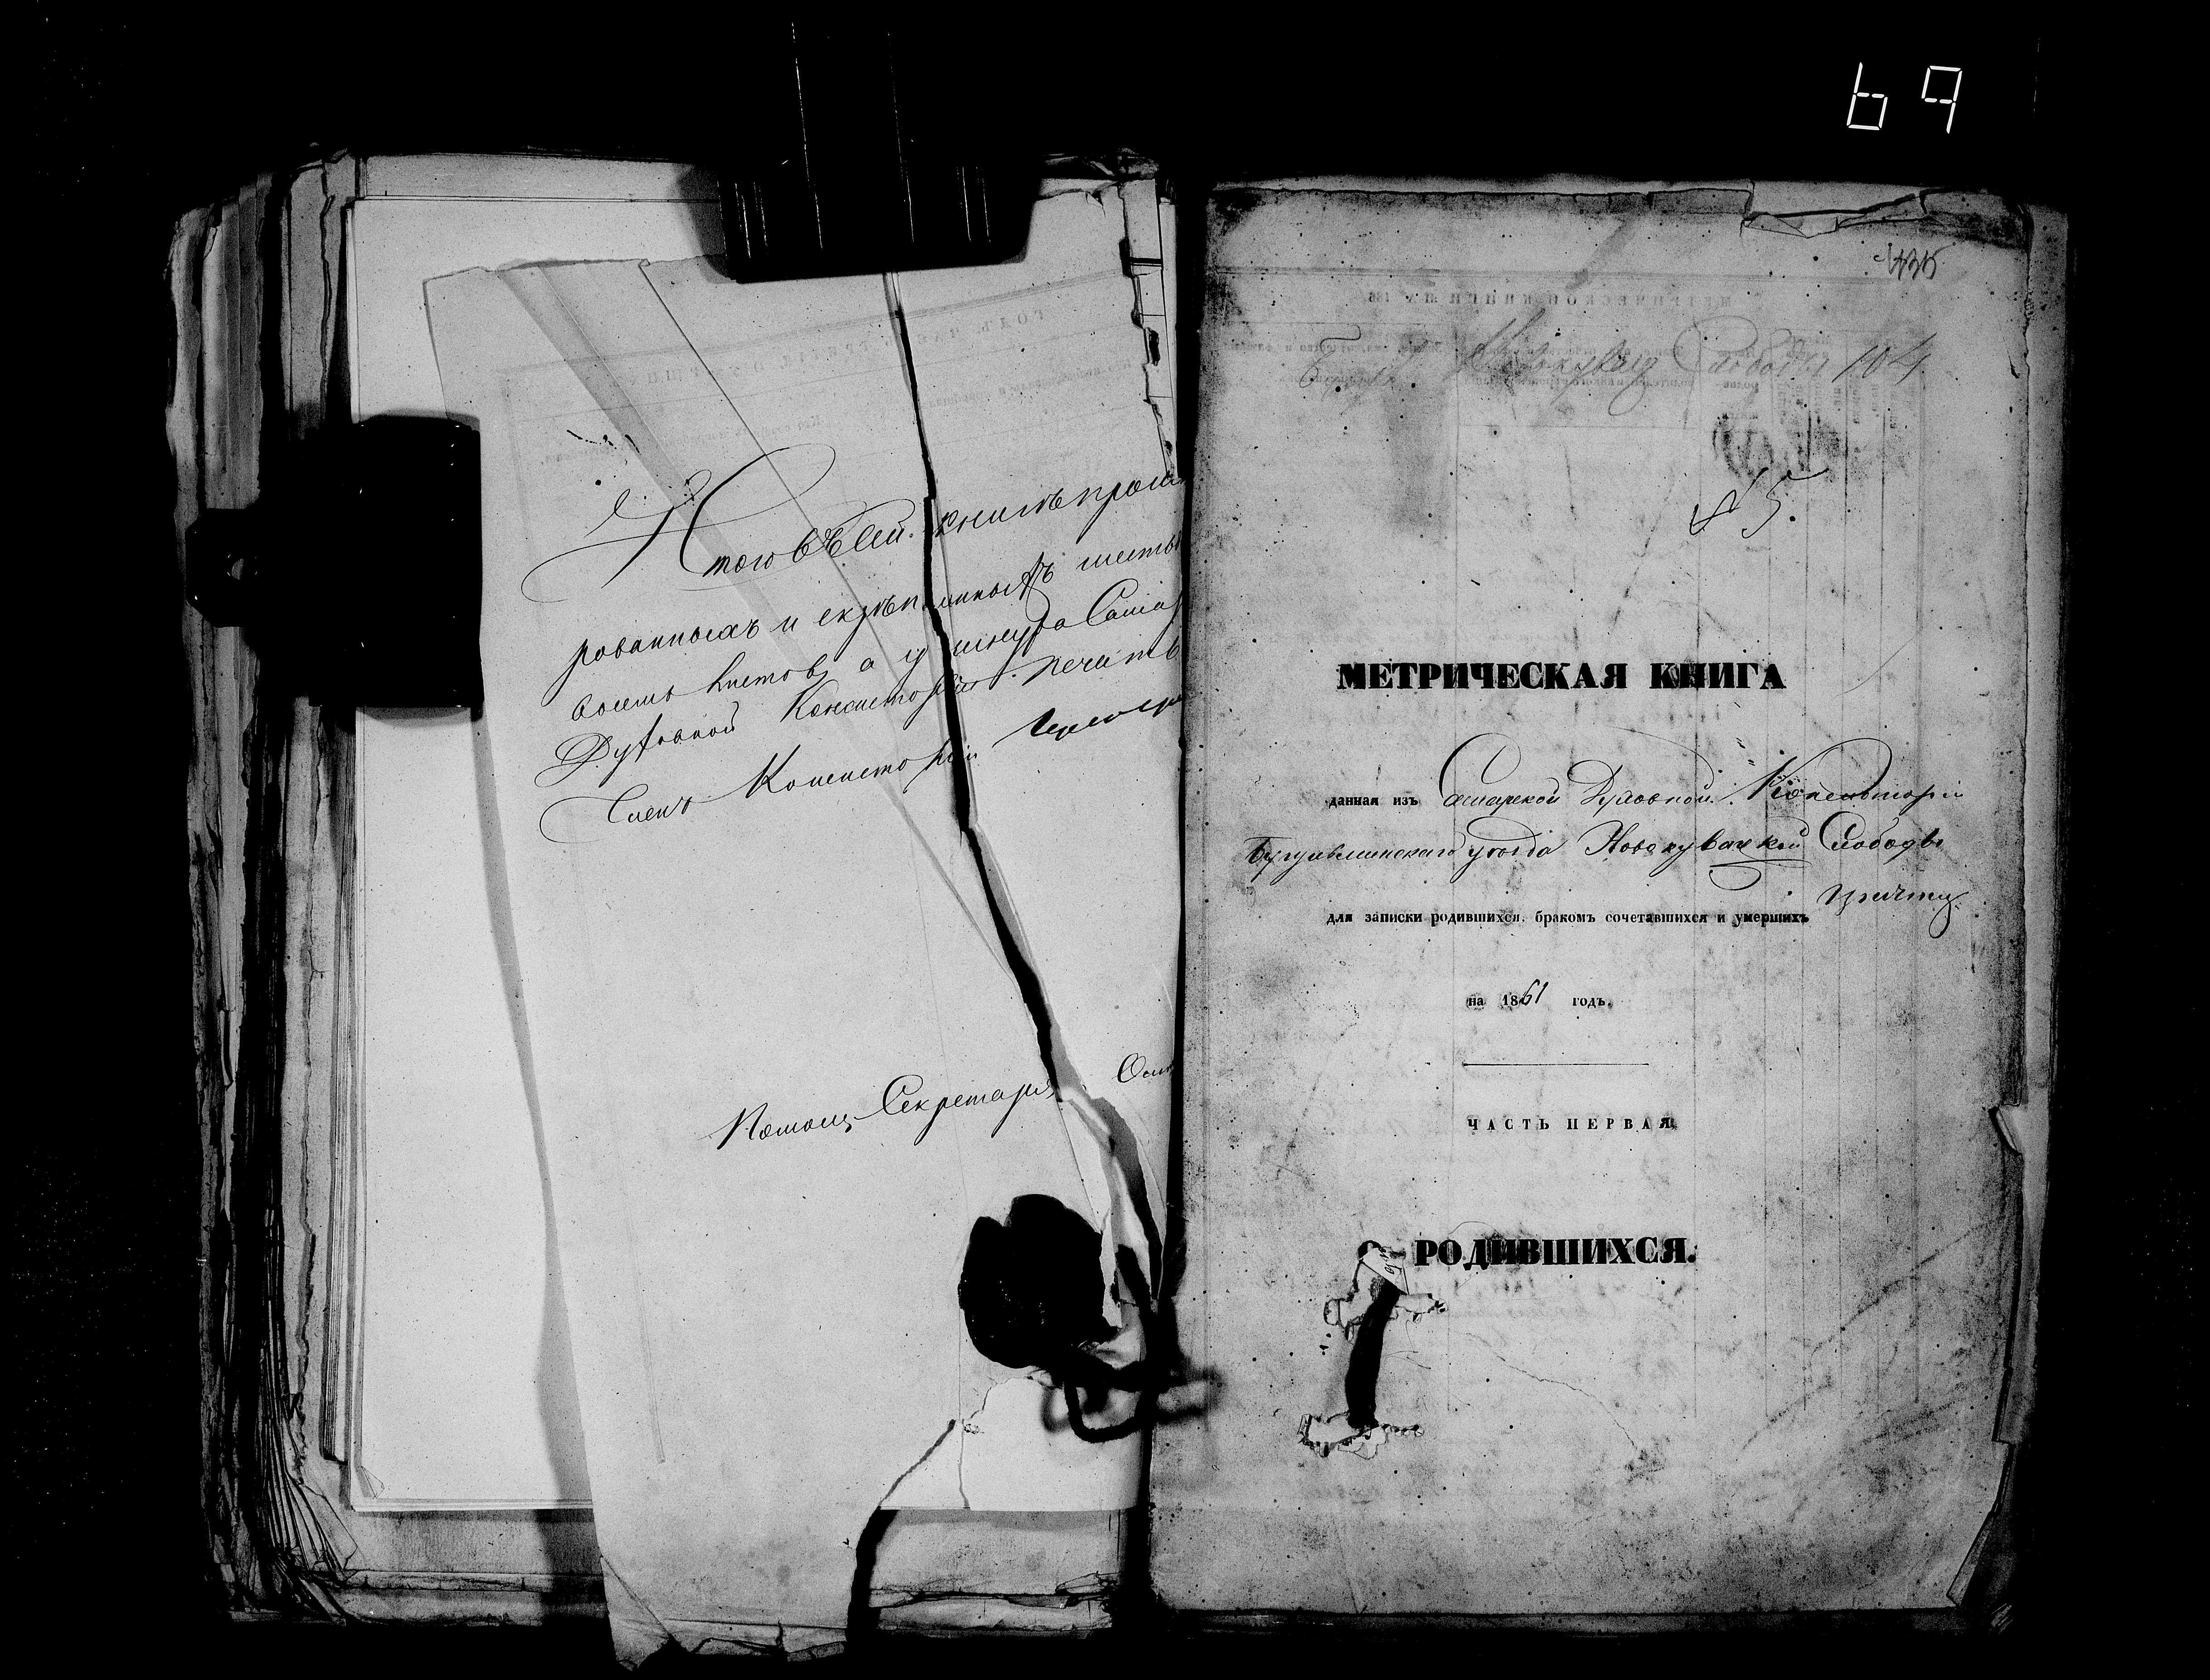 69
Итого въ сей книгѣ прош
рованныхъ и скрѣпленныхъ шесть
восемь листовъ, а у шнура Самар
Духовной Консисторіи печать
Членъ Консисторіи
Помощ. Секретаря
435
Слободы 104
№ 5.
МЕТРИЧЕСКАЯ КНИГА
данная изъ Самарской Духовной Консисторіи
Бугульминскаго уѣзда Новокувацкой Слободы
причту
для записки родившихся, бракомъ сочетавшихся и умершихъ
на 1861 годъ.
ЧАСТЬ ПЕРВАЯ,
О РОДИВШИХСЯ.